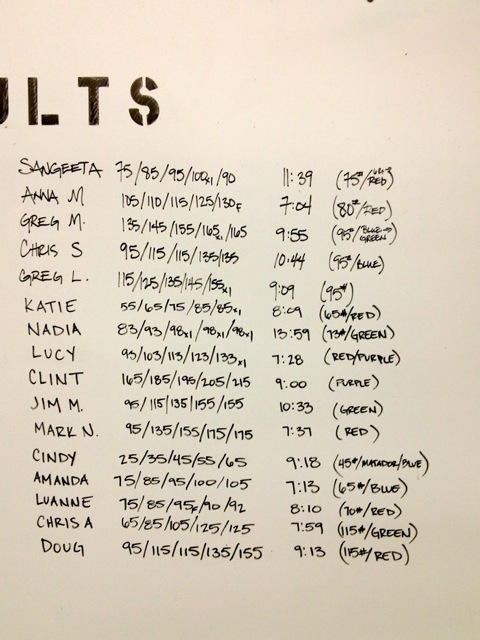 ULTS
SANGEETA 75/85/95/100x1/90 11:39 (75#/RED)
ANNA M 105/110/115/125/130F 7:04 (80#/RED)
GREG M. 135/145/155/165x1/165 9:55 (95#/BLUE→GREEN)
CHRIS S 95/115/115/135/135 10:44 (95#/BLUE)
GREG L. 115/125/135/145/155x1 9:09 (95#)
KATIE 55/65/75/85/85x1 8:09 (65#/RED)
NADIA 83/93/98x1/98x1/98x1 13:59 (73#/GREEN)
LUCY 93/103/113/123/133x1 7:28 (RED/PURPLE)
CLINT 165/185/195/205/215 9:00 (PURPLE)
JIM M. 95/115/135/155/155 10:33 (GREEN)
MARK N. 95/135/155/175/175 7:37 (RED)
CINDY 25/35/45/55/65 9:18 (45#/MATADOR/BLUE)
AMANDA 75/85/95/100/105 7:13 (65#/BLUE)
LUANNE 75/85/95F/90/92 8:10 (70#/RED)
CHRIS A 65/85/105/125/125 7:59 (115#/GREEN)
DOUG 95/115/115/135/155 9:13 (115#/RED)